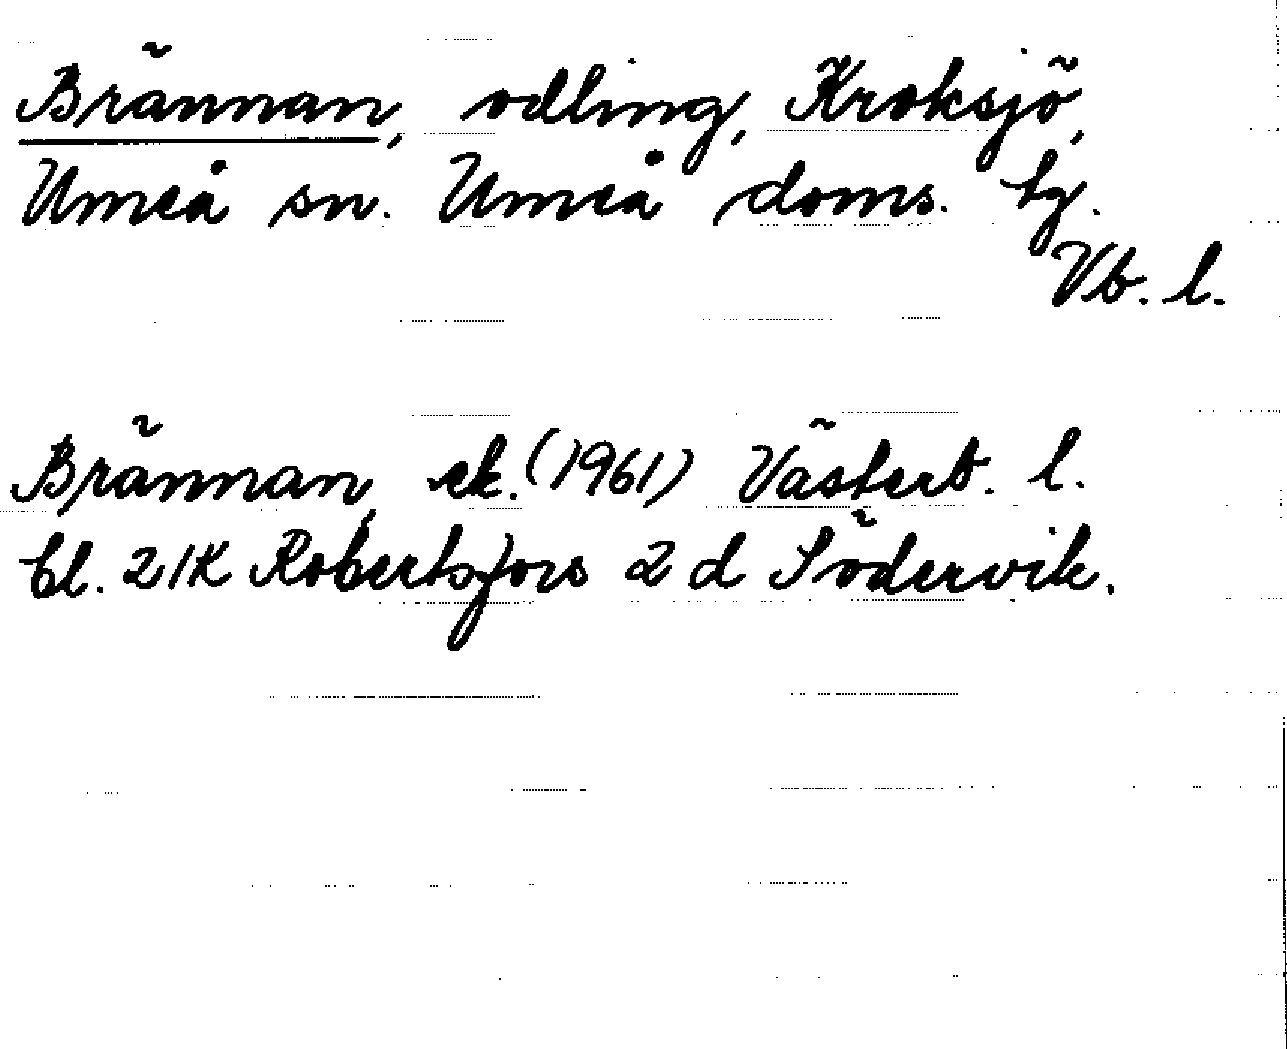 Brännan, odling, Kroksjö,
Umeå sn. Umeå doms. tg.
Vb. l.
Brännan, ek. (1961) Västerb. l.
bl. 21K Robertsfors 2 d Södervik.